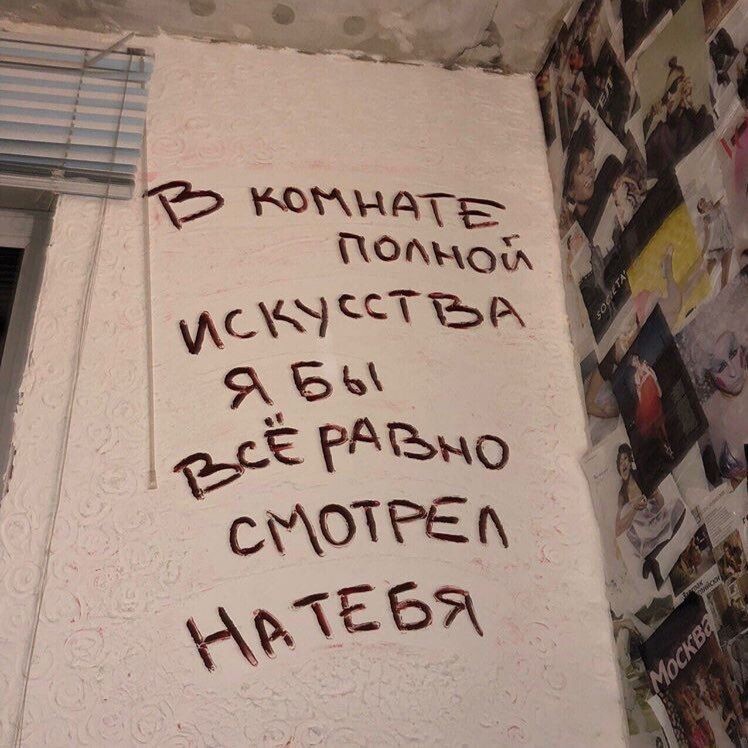 В КОМНАТЕ
ПОЛНОЙ
ИСКУССТВА
Я БЫ
ВСЁ РАВНО
СМОТРЕЛ
НА ТЕБЯ
МОСКВ